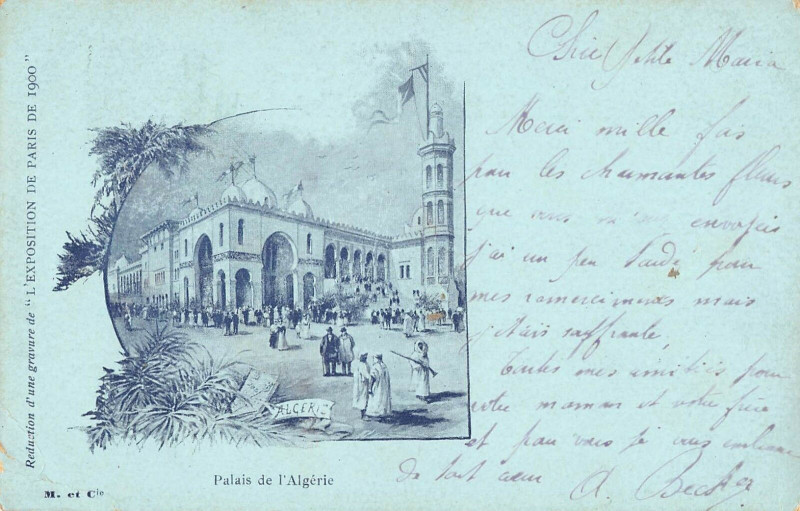 Réduction d'une gravure de "L'EXPOSITION DE PARIS DE 1900"
ALGERIE
Palais de l'Algérie
M. et Cie
Chère Petite Maria
Merci mille fois
pour les charmantes fleurs
que vous m'avez envoyées
j'ai un peu tardé pour
mes remerciments mais
j'étais souffrante.
Toutes mes amitiés pour
votre maman et votre frère
et pour vous je vous embrasse
de tout cœur A. Becker